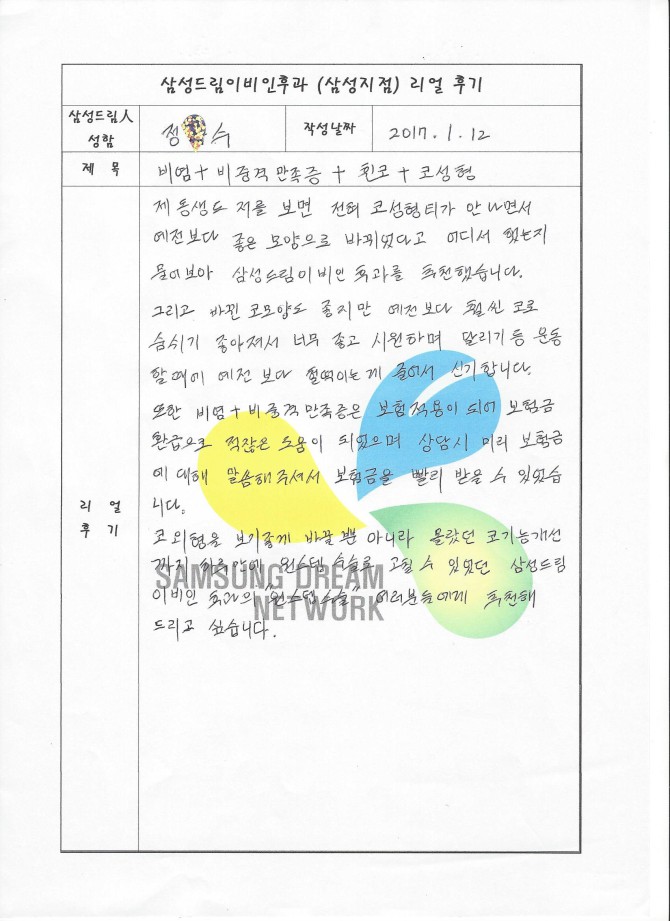 삼성드림이비인후과 (삼성지점) 리얼 후기
삼성드림人 성함
정 수
작성날짜
2017. 1. 12
제 목
비염+비중격만곡증 + 휜코 + 코성형
리 얼 후 기
제 동생도 저를 보면 전혀 코성형티가 안나면서
예전보다 좋은 모양으로 바뀌었다고 어디서 했는지
물어보아 삼성드림이비인후과를 추천했습니다.
그리고 바뀐 코모양도 좋지만 예전보다 훨씬 코로
숨쉬기 좋아져서 너무 좋고 시원하며 달리기등 운동
할때에 예전 보다 헐떡이는게 줄어서 신기합니다.
또한 비염+비중격만곡증은 보험적용이 되어 보험금
환급으로 적잖은 도움이 되었으며 상담시 미리 보험금
에 대해 말씀해주셔서 보험금을 빨리 받을 수 있었습
니다.
코외형을 보기좋게 바꿀 뿐 아니라 몰랐던 코기능개선
까지 하루만에 원스텝 수술로 고칠 수 있었던 삼성드림
이비인후과의 "원스텝수술" 여러분들에게 추천해
드리고 싶습니다.
SAMSUNG DREAM
NETWORK